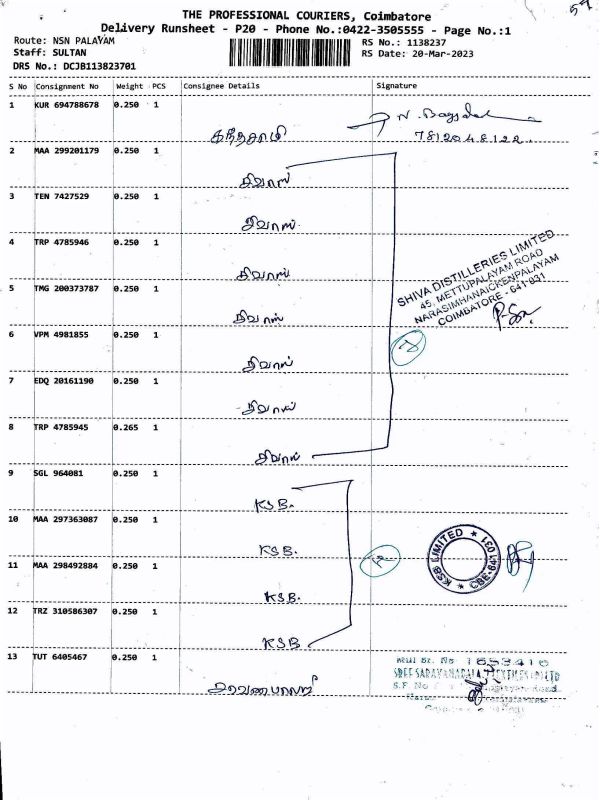 THE PROFESSIONAL COURIERS, Coimbatore
Delivery Runsheet - P20 - Phone No.:0422-3505555 - Page No.:1
Route: NSN PALAYAM
RS No.: 1138237
Staff: SULTAN
RS Date: 20-Mar-2023
DRS No.: DCJB113823701
S No Consignment No Weight PCS Consignee Details Signature
1 KUR 694788678 0.250 1
கந்தசாமி
7812048122
2 MAA 299201179 0.250 1
சிவாஸ்
3 TEN 7427529 0.250 1
சிவாஸ்
4 TRP 4785946 0.250 1
சிவாஸ்
5 TMG 200373787 0.250 1
சிவாஸ்
SHIVA DISTILLERIES LIMITED
45, METTUPALAYAM ROAD
NARASIMHANAICKENPALAYAM
COIMBATORE - 641 031
6 VPM 4981855 0.250 1
சிவாஸ்
7 EDQ 20161190 0.250 1
சிவாஸ்
8 TRP 4785945 0.265 1
சிவாஸ்
9 SGL 964081 0.250 1
KSB.
10 MAA 297363087 0.250 1
KSB.
KSB LIMITED ★ CBE-641 031 ★
11 MAA 298492884 0.250 1
KSB.
12 TRZ 310586307 0.250 1
KSB.
13 TUT 6405467 0.250 1
சரவணபாலாஜி